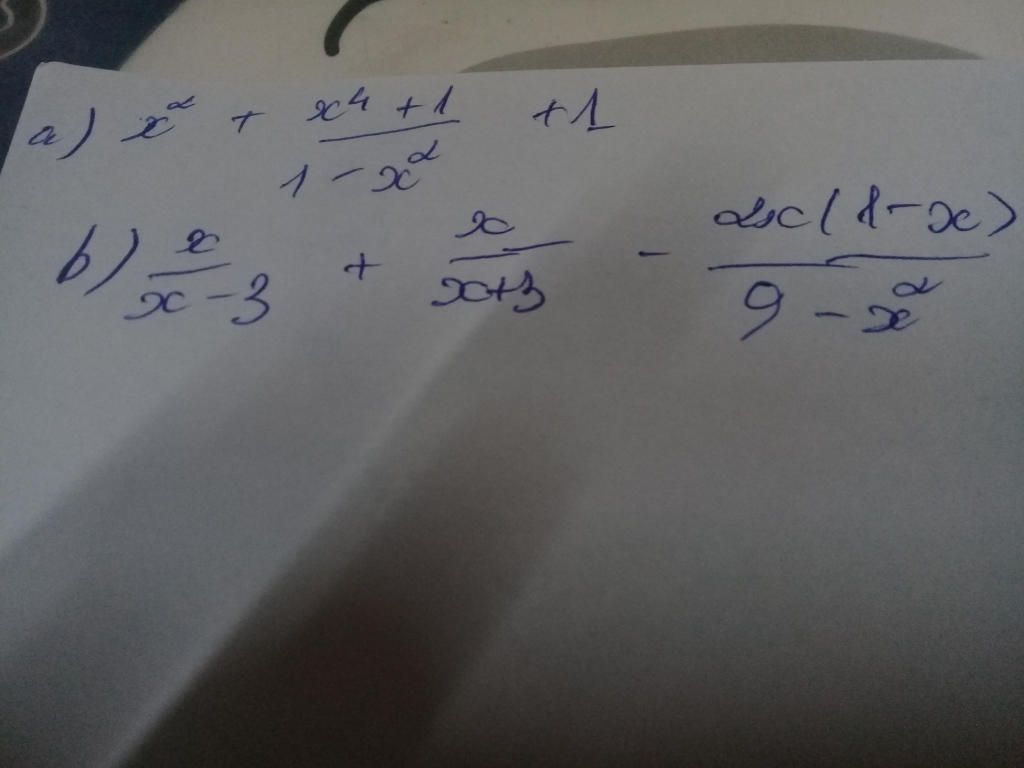 a) x² + \frac{x⁴ + 1}{1 - x²} + 1
b) \frac{x}{x - 3} + \frac{x}{x + 3} - \frac{2x(1 - x)}{9 - x²}